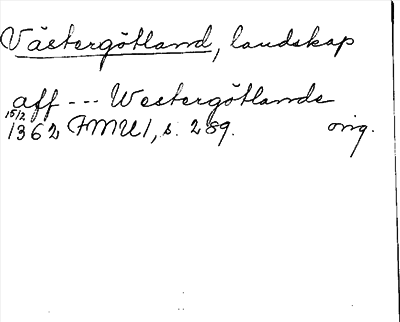 Västergötland, landskap
aff --- Westergötlands
15/2
1362 FMU 1, s. 289. orig.